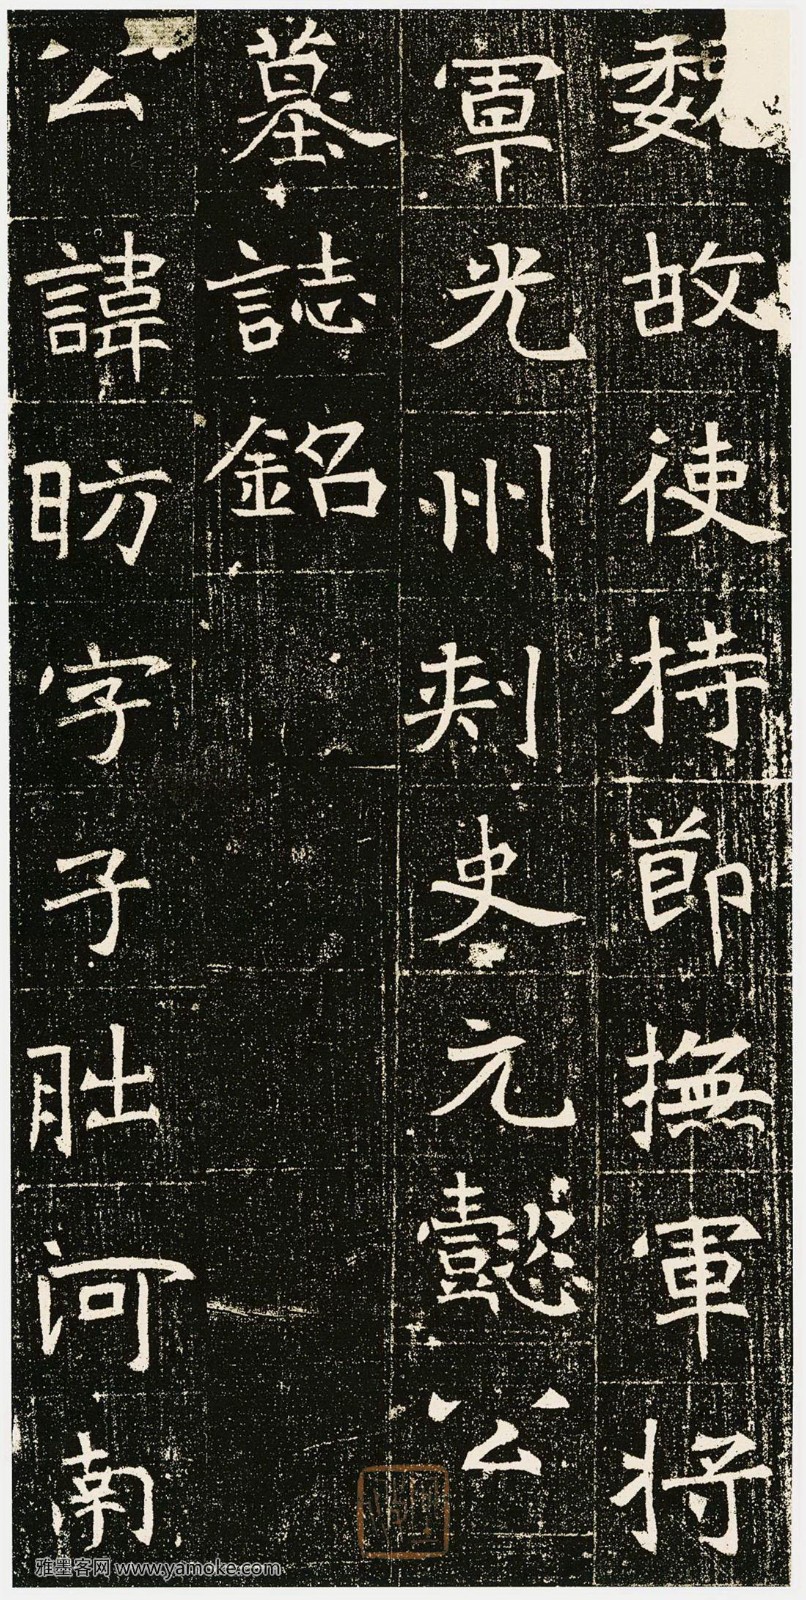 魏故使持節撫軍將
軍光州刺史元懿公
墓誌銘
公諱昉字子朏河南
雅墨客网 www.yamoke.com